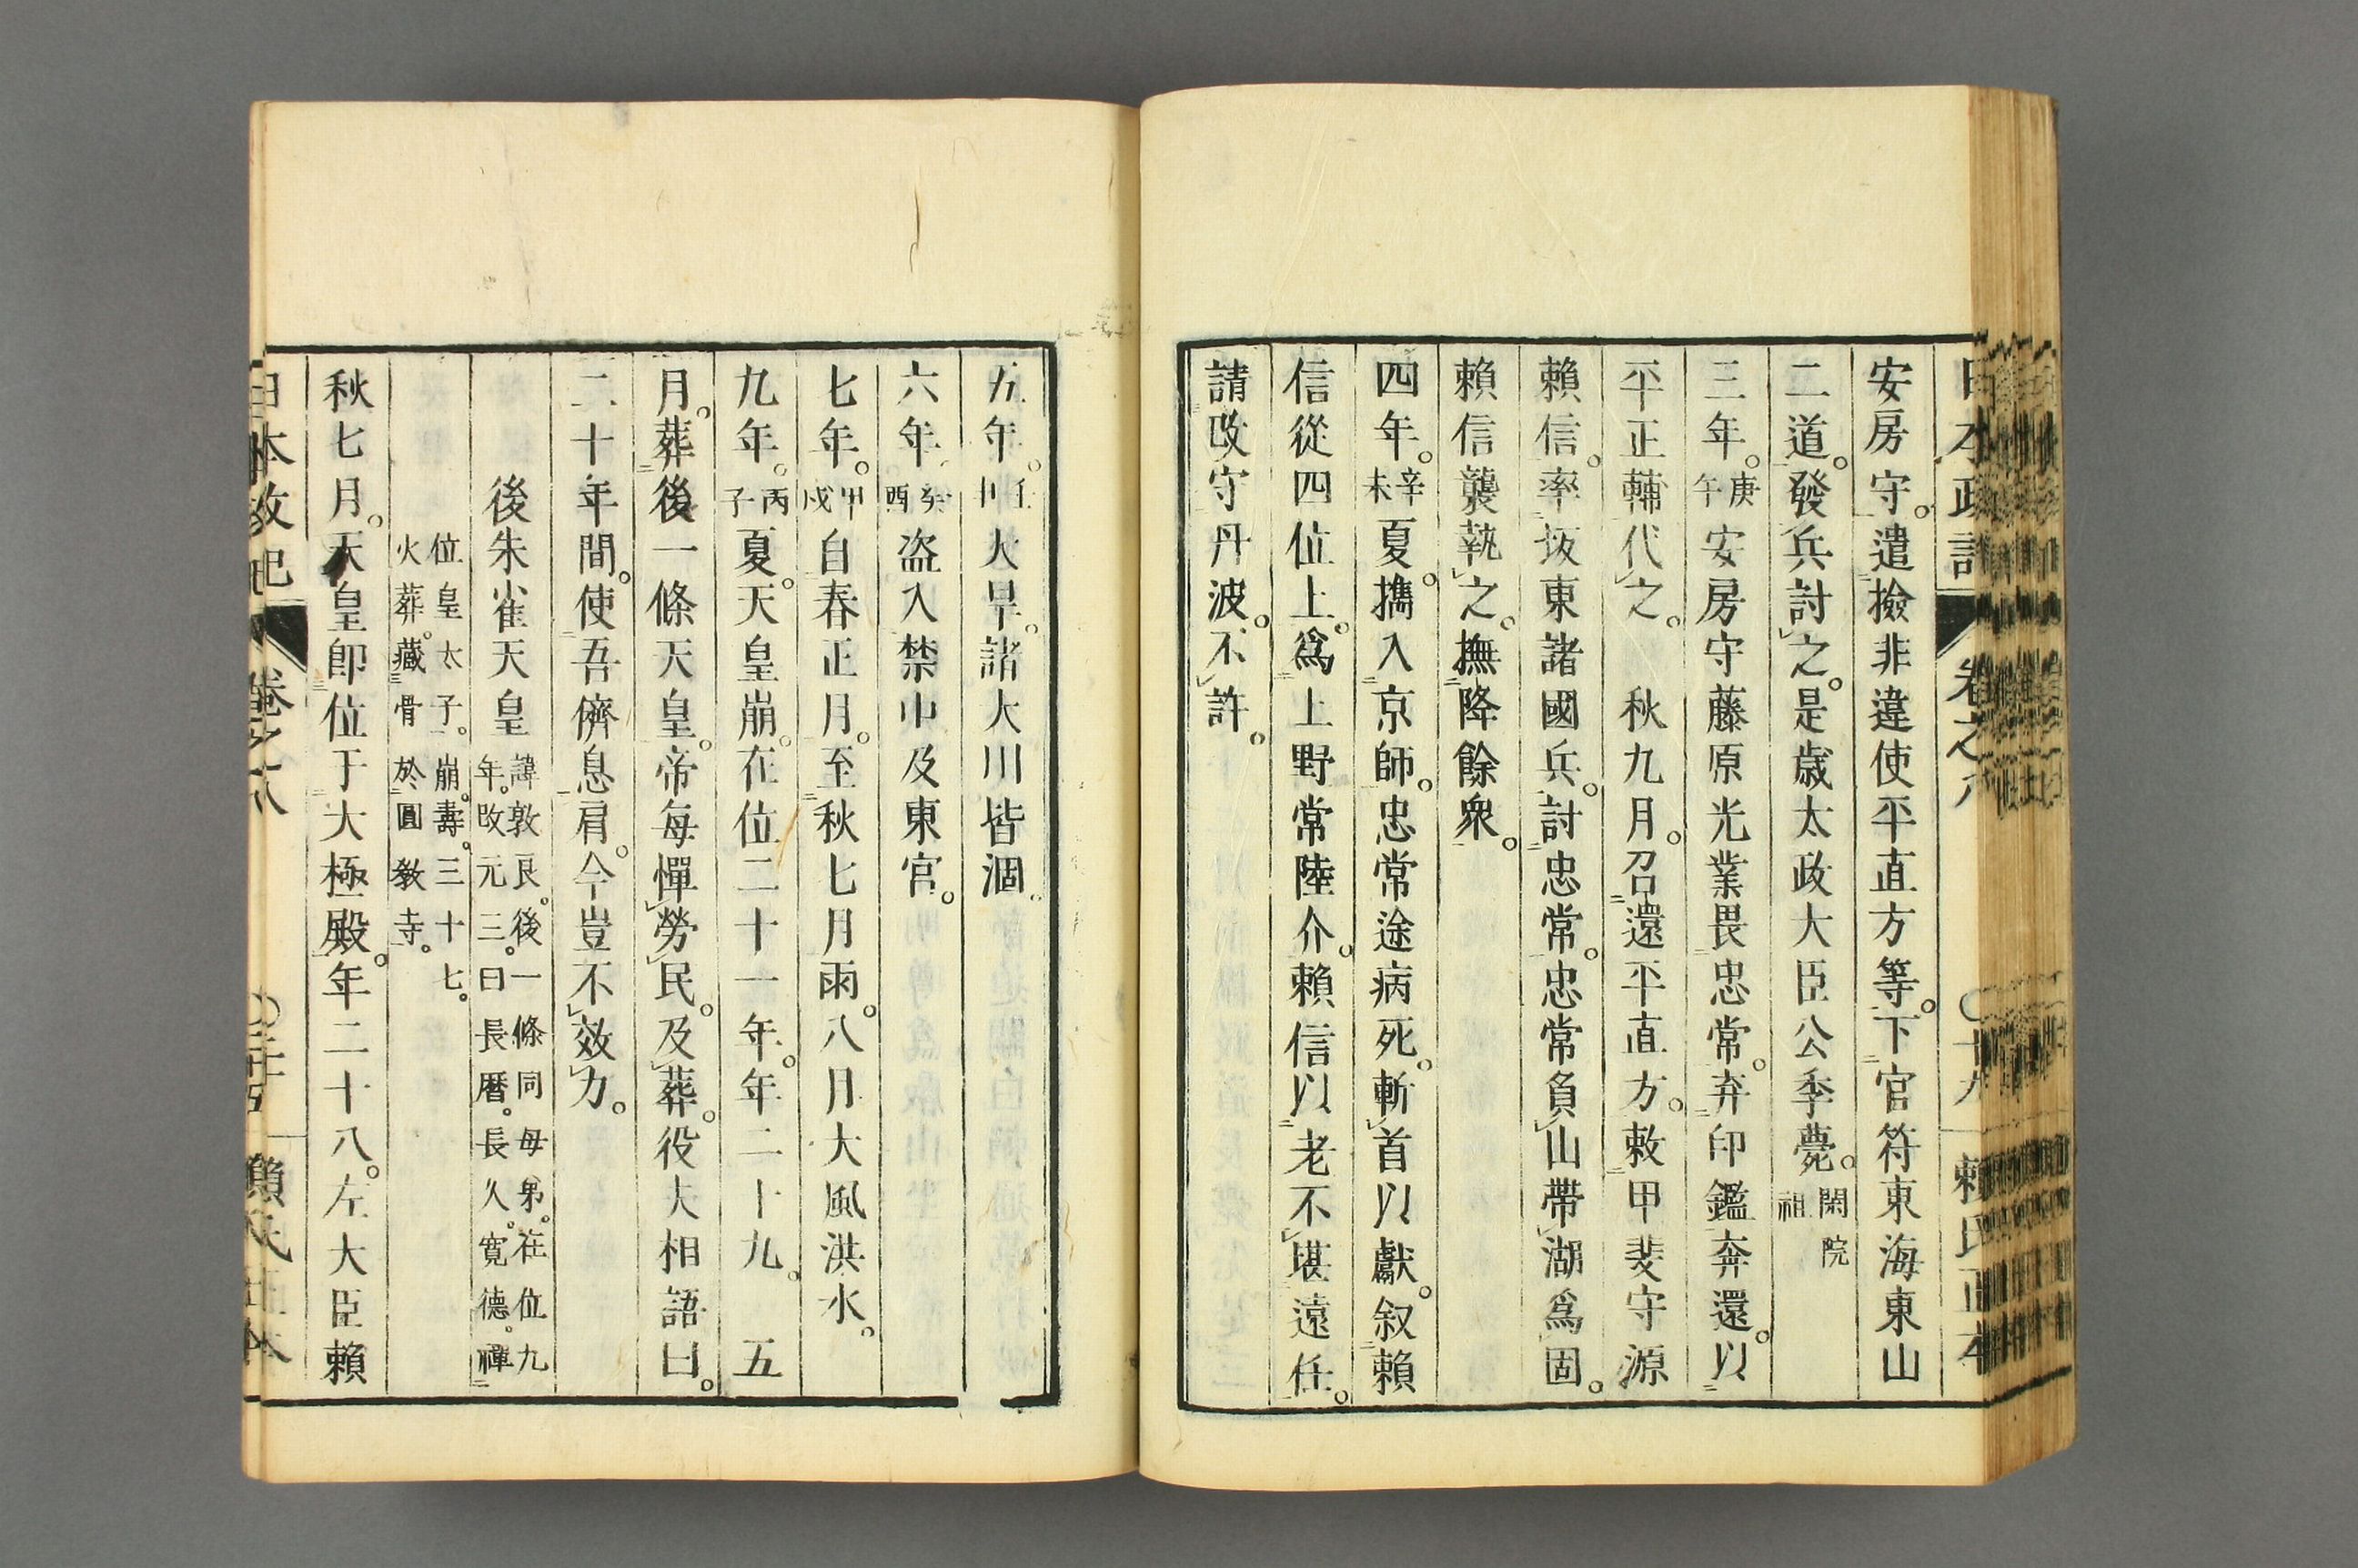 日本政記 卷之八 ○十九 賴氏正本
安房守。遣撿非違使平直方等。下官符東海東山
二道。發兵討之。是歳太政大臣公季薨。閑院祖
三年。庚午安房守藤原光業畏忠常。弃印鑑奔還。以
平正輔代之。　秋九月。召還平直方。敕甲斐守源
賴信。率坂東諸國兵。討忠常。忠常負山帶湖爲固。
賴信襲執之。撫降餘衆。
四年。辛未夏。擕入京師。忠常途病死。斬首以獻。叙賴
信從四位上。爲上野常陸介。賴信以老不堪遠任。
請改守丹波。不許。
五年。壬申大旱。諸大川皆涸。
六年。癸酉盗入禁中及東宮。
七年。甲戌自春正月。至秋七月雨。八月大風洪水。
九年。丙子夏。天皇崩。在位二十一年。年二十九。　五
月。葬後一條天皇。帝每憚勞民。及葬。役夫相語曰。
二十年間。使吾儕息肩。今豈不效力。
後朱雀天皇 諱敦良。後一條同母弟。在位九年。改元三。曰長暦。長久。寛德。禪
位皇太子。崩。壽三十七。火葬。藏骨於圓敎寺。
秋七月。天皇卽位于大極殿。年二十八。左大臣賴
日本政記 卷之八 賴氏正本